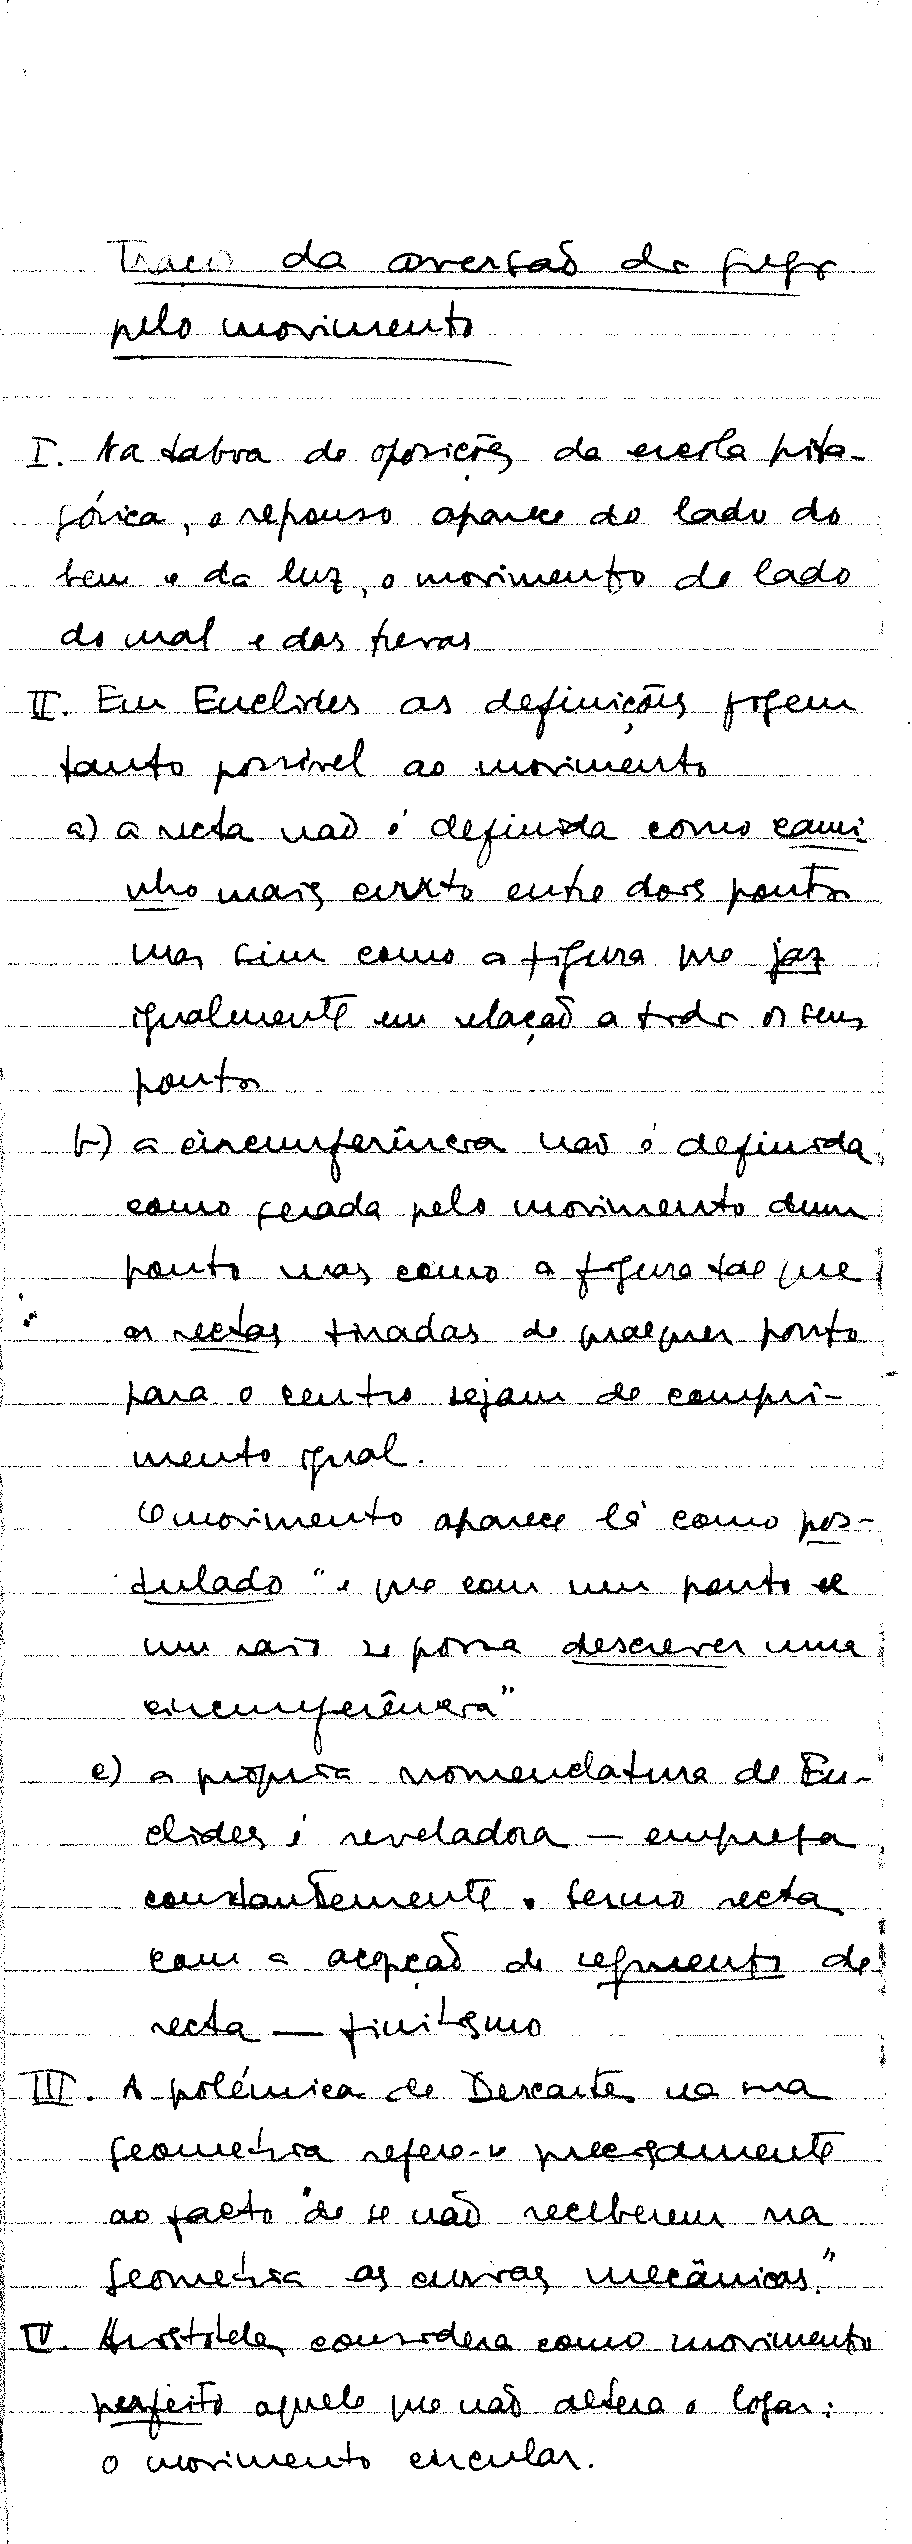 Traços da aversão do grego
pelo movimento
I. Na tabua de oposições da escola pita-
górica, o repouso aparece do lado do
bem e da luz, o movimento do lado
do mal e das trevas
II. Em Euclides as definições fogem
tanto possível ao movimento
a) a recta não é definida como cami
nho mais curto entre dois pontos
mas sim como a figura que jaz
igualmente em relação a todos os seus
pontos
b) a circunferência não é definida
como gerada pelo movimento dum
ponto mas como a figura tal que
as rectas tiradas de qualquer ponto
para o centro sejam de compri-
mento igual.
O movimento aparece lá como pos-
tulado "e que com um ponto e
um raio se possa descrever uma
circunferência"
c) a própria nomenclatura de Eu-
clides é reveladora — emprega
constantemente o termo recta
com a acepção de segmento de
recta — finitismo
III. A polémica de Descartes na sua
Geometria refere-se precisamente
ao facto "de se não receberem na
Geometria as curvas mecânicas."
IV. Aristóteles considera como movimento
perfeito aquele que não altera o logar:
o movimento circular.